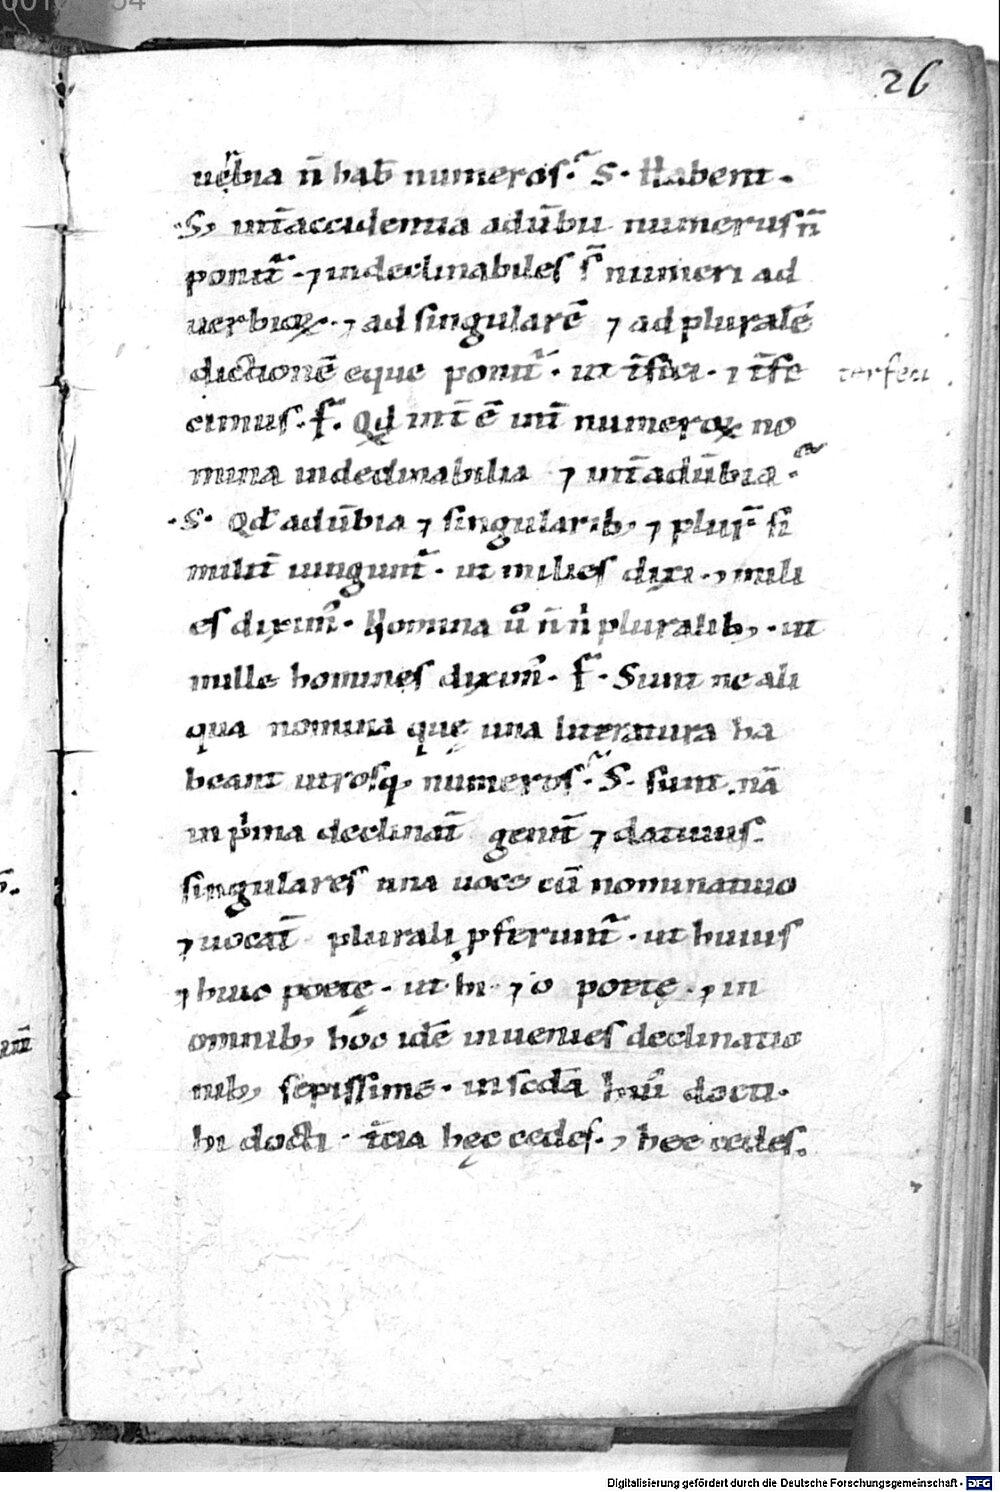 26
uerbia n̄ hab̄ numeros. S. Habent.
S, int̄ accidentia adūbii numerus n̄
ponit᷑. ⁊ indeclinabiles s̄ numeri ad
uerbioꝝ. ⁊ ad singularē ⁊ ad pluralē
dictionē eque ponit᷑. ut īfeci. ⁊ īfe
terfeci
cimus. F. Qd int̄ ē int̄ numeroꝝ no
mina indeclinabilia ⁊ int̄ adūbia.
S. Qd adūbia ⁊ singularib, ⁊ plur̄ si
milit̄ iungunt᷑. ut milies dixi. ⁊ mili
es dixim᷒. Nomina ů n̄ n̍ pluralib,. ut
mille homines dixim᷒. F. Sunt ne ali
qua nomina quę una literatura ha
beant utrosq, numeros. S. sunt. nā
in p̍ma declinat̄ genit̄ ⁊ datiuus.
singulares una uoce cū nominatiuo
⁊ uocat̄ plurali ꝓferunt᷑. ut huius
⁊ huic poetę. ut hi ⁊ o poetę. ⁊ in
omnib, hoc idē inuenies declinatio
nib, sepissime. in scd̄a hui᷒ docti.
hi docti. īcia hęc cedes. ⁊ hee cedes.
Digitalisierung gefördert durch die Deutsche Forschungsgemeinschaft - DFG